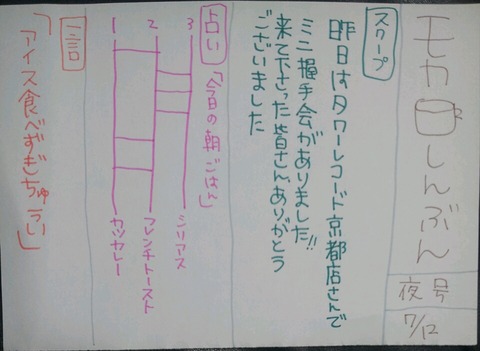 モカしんぶん
夜号
7/12
スクープ
昨日はタワーレコード京都店さんで
ミニ握手会がありました!!
来て下さった皆さん、ありがとう
ございました
占い
「今日の朝ごはん」
3
シリアス
2
フレンチトースト
1
カツカレー
一言
「アイス食べずぎちゅうい」